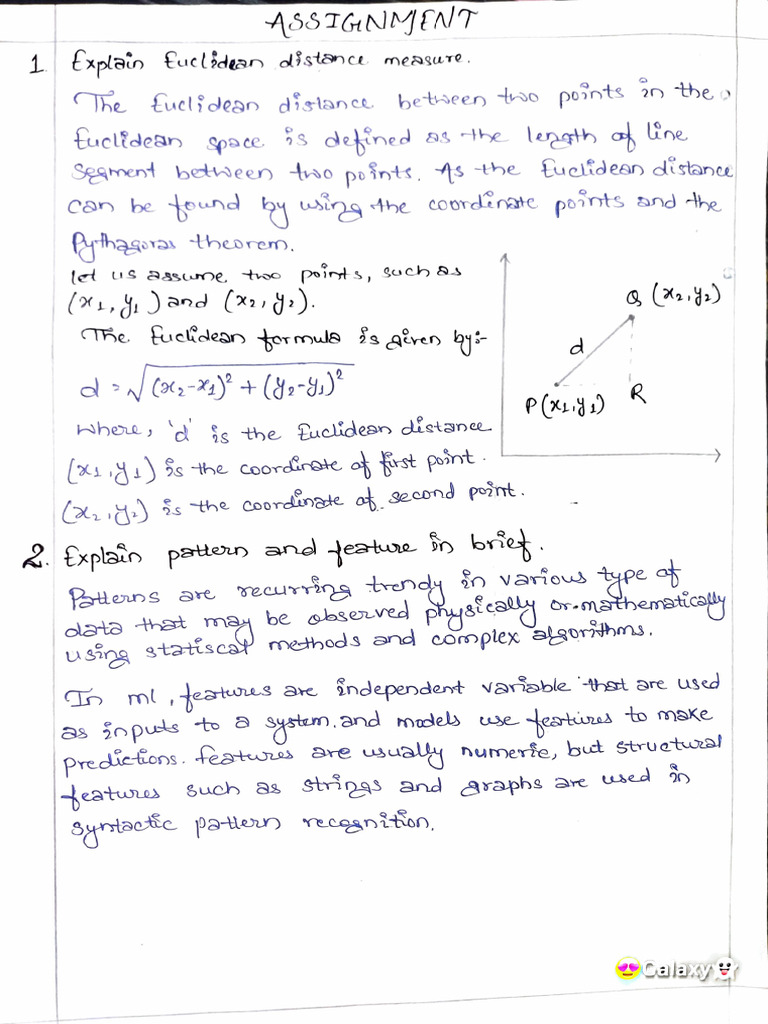 ASSIGNMENT
1. Explain Euclidean distance measure.
The Euclidean distance between two points in the
Euclidean space is defined as the length of line
segment between two points. As the Euclidean distance
can be found by using the coordinate points and the
Pythagoras theorem.
let us assume two points, such as
(x1, y1) and (x2, y2).
The Euclidean formula is given by:-
d = √(x2-x1)² + (y2-y1)²
where, 'd' is the Euclidean distance
(x1, y1) is the coordinate of first point.
(x2, y2) is the coordinate of second point.
Q (x2, y2)
d
P(x1, y1)
R
2. Explain pattern and feature in brief.
Patterns are recurring trendy in various type of
data that may be observed physically or mathematically
using statiscal methods and complex algorithms.
In ml, features are independent variable that are used
as inputs to a system. and models use features to make
predictions. features are usually numeric, but structural
features such as strings and graphs are used in
syntactic pattern recognition.
😍Galaxy👻